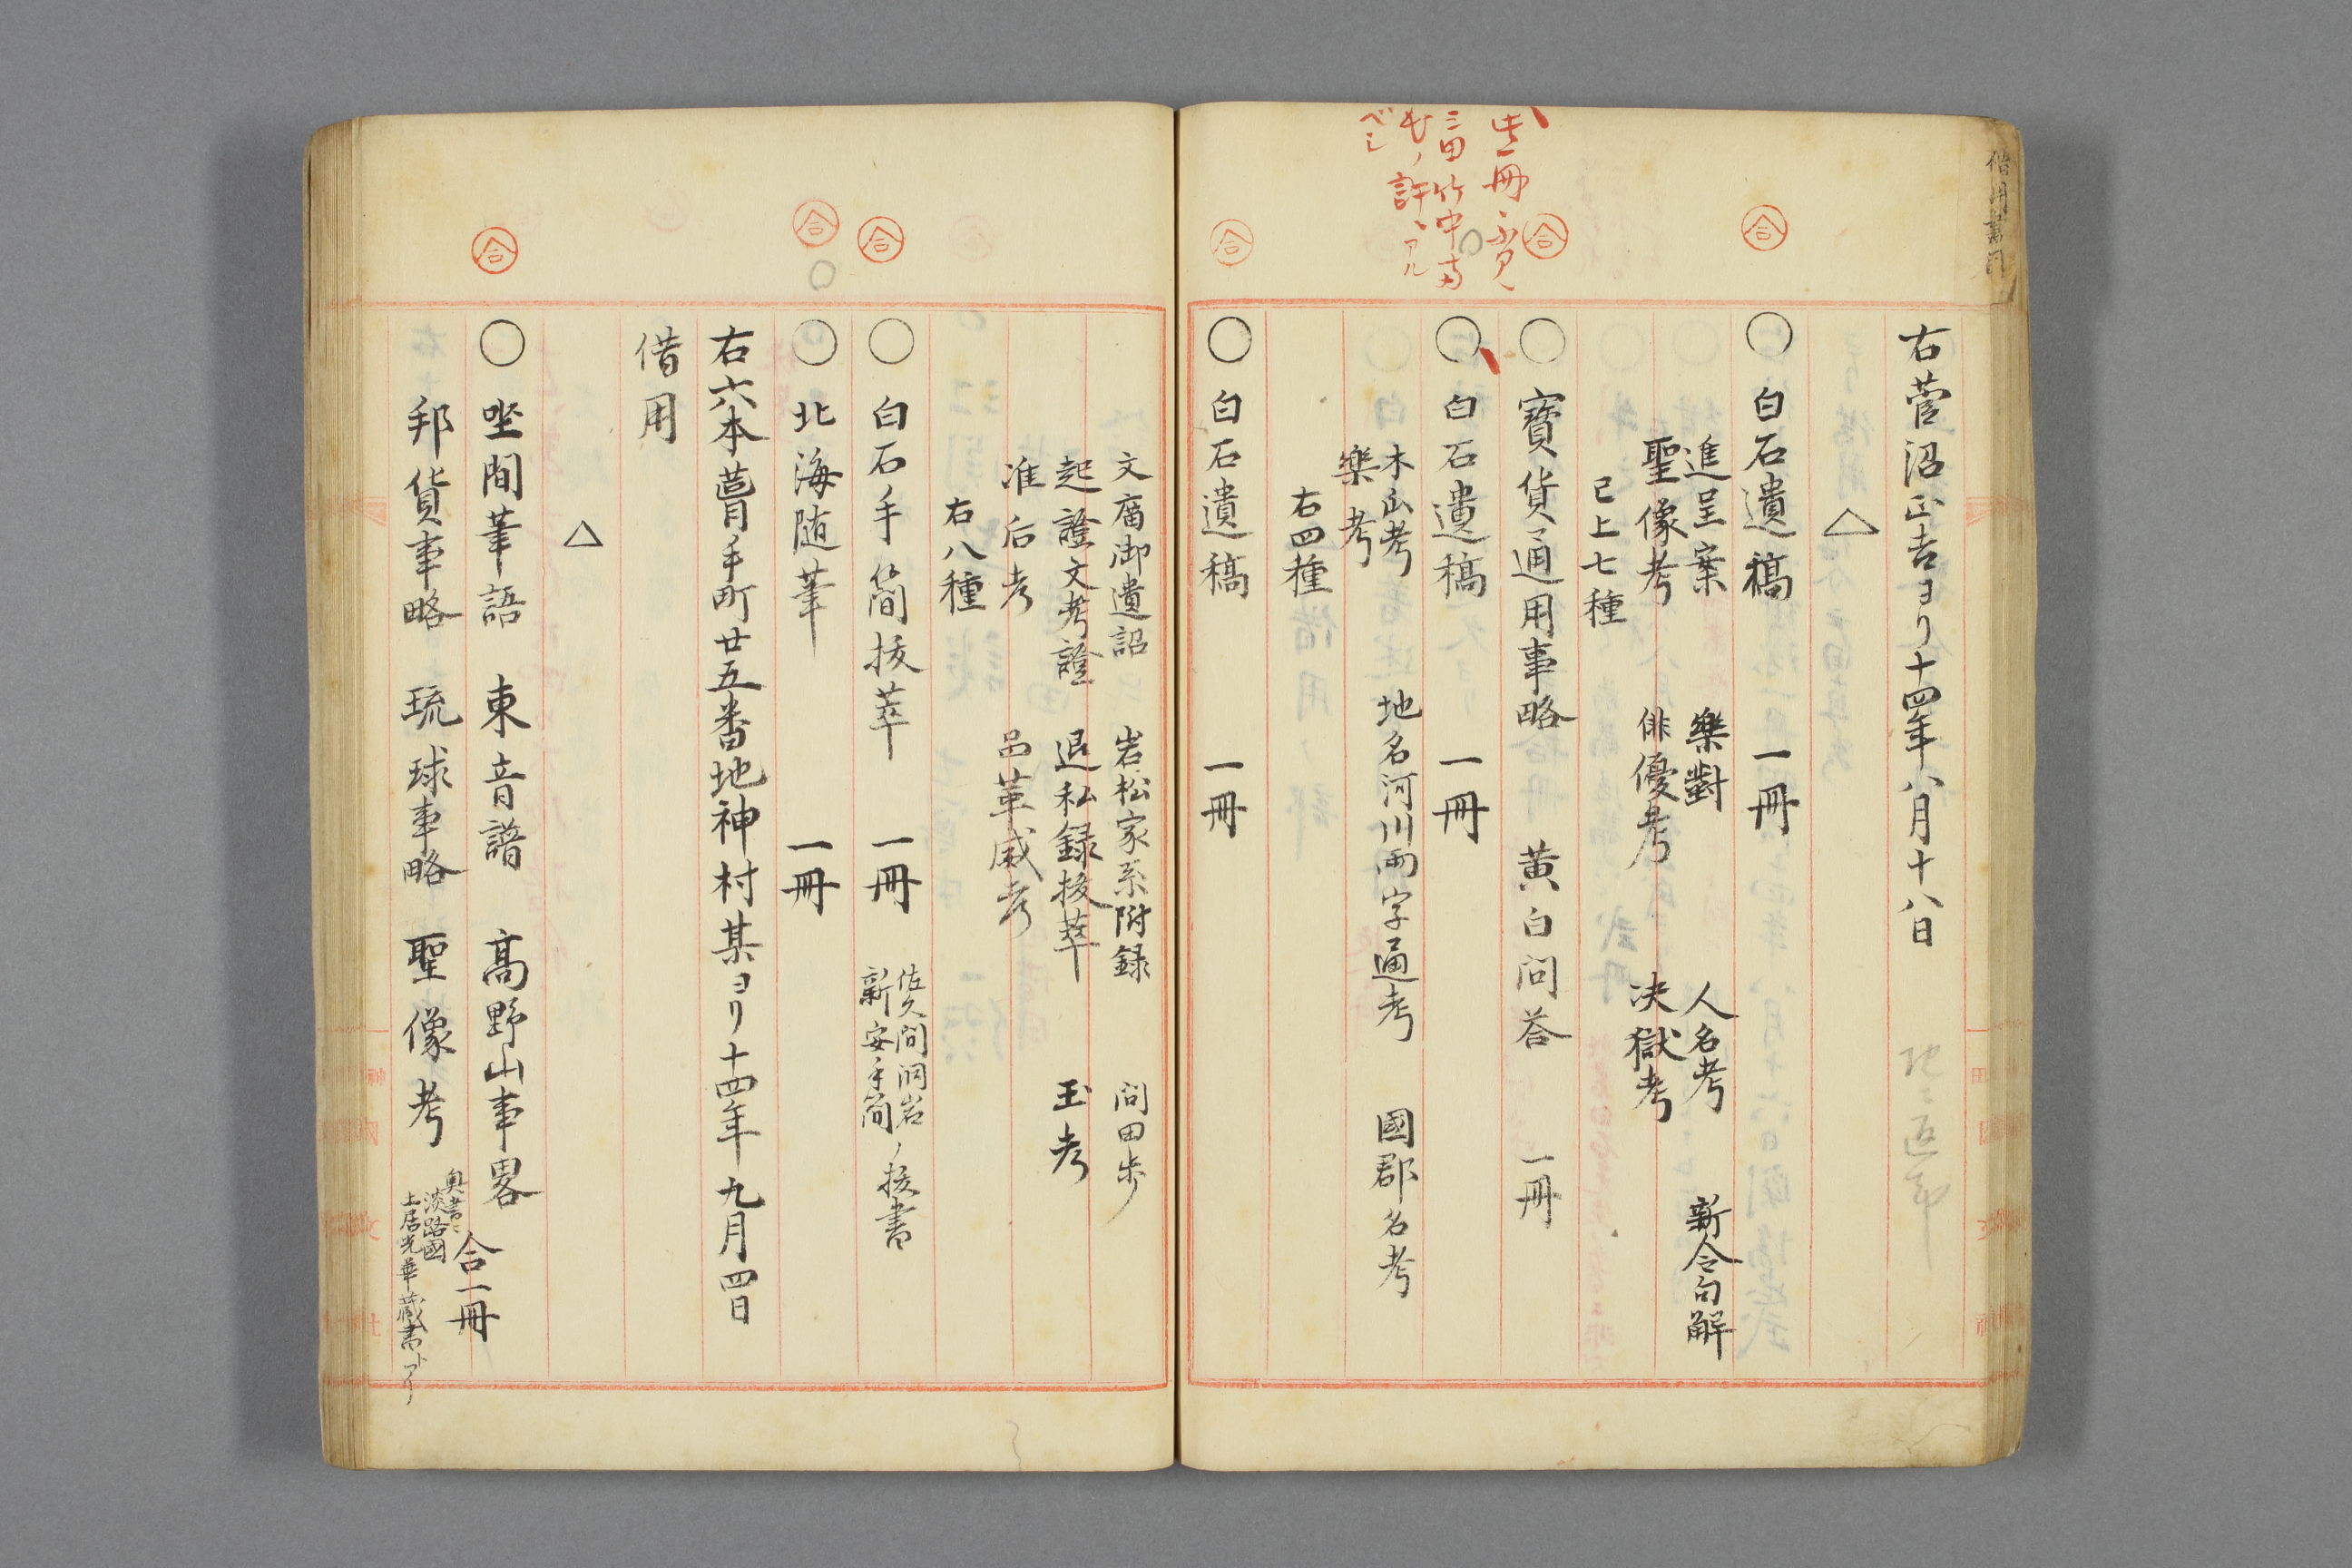 右菅沼正吉ヨリ十四年八月十八日
△
○ 白石遺稿 一冊
進呈案 樂對 人名考 新令句解
聖像考 俳優考 决獄考
已上七種
○ 寳貨通用事略 黄白問荅 一冊
此一冊
三田竹中
ベシ
○ 白石遺稿 一冊
木瓜考 地名河川兩字通考 國郡名考
樂考
右四種
○ 白石遺稿 一冊
文廟御遺詔 岩松家系附録 問田歩
起證文考證 退私録抜萃 玉考
准后考 品革威考
右八種
○ 白石手簡抜萃 一冊 佐久間洞岩ノ抜書
新安手簡
○ 北海随筆 一冊
右六本蒼手町廿五番地神村某ヨリ十四年九月四日
借用
△
○ 坐間筆語 東音譜 髙野山事畧 合一冊
邦貨事略 琉球事略 聖像考
奥書ニ
淡路國
土居光華蔵書トアリ
合
合
合
合
合
合